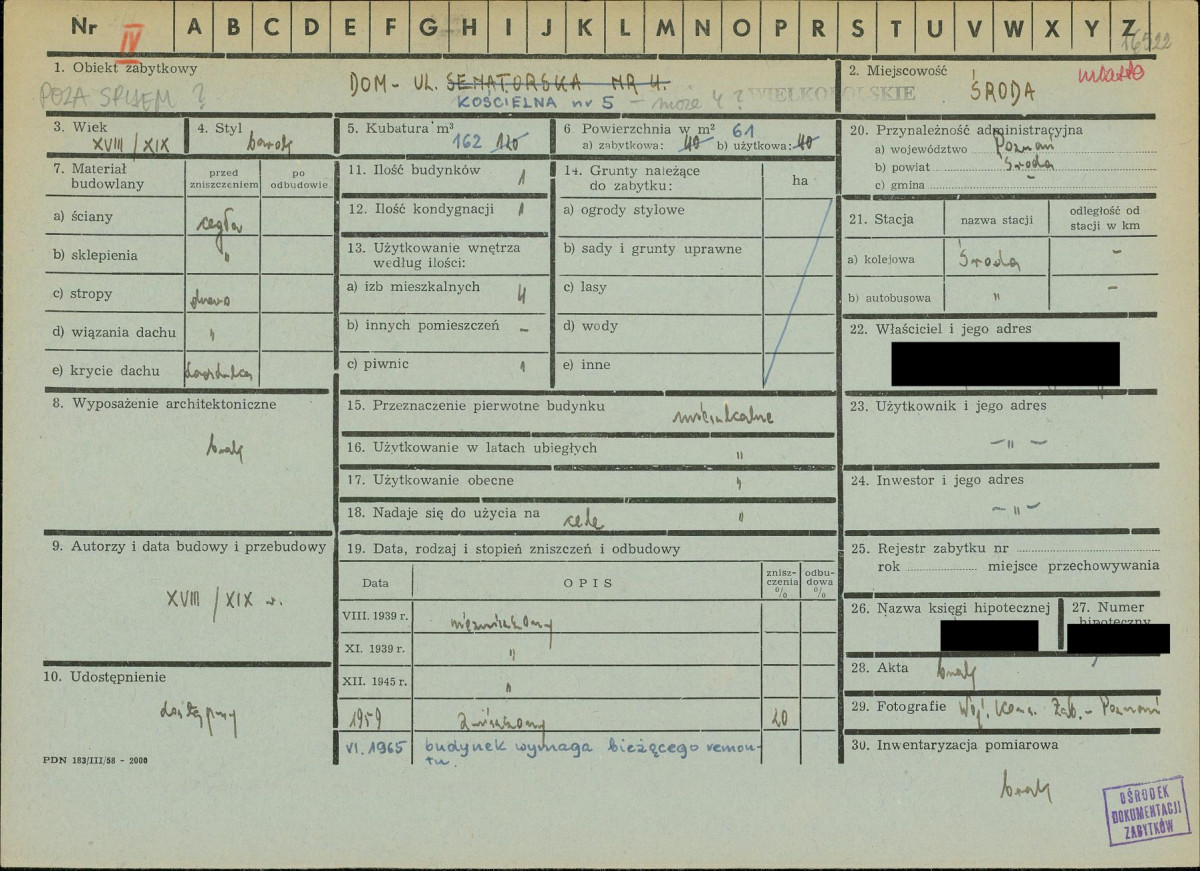 Nr IV A B C D E F G H I J K L M N O P R S T U V W X Y Z
16522
1. Obiekt zabytkowy
POZA SPISEM ?
DOM - UL. SENATORSKA NR 4.
KOŚCIELNA nr 5 - może 4 ?
WIELKOPOLSKIE
2. Miejscowość
miasto
ŚRODA
3. Wiek
XVIII/XIX
4. Styl
barok
5. Kubatura m³
162 120
6. Powierzchnia w m² 61
a) zabytkowa: 40 b) użytkowa: 40
20. Przynależność administracyjna
a) województwo Poznań
b) powiat Środa
c) gmina -
7. Materiał budowlany
przed zniszczeniem
po odbudowie
a) ściany cegła
b) sklepienia "
c) stropy drewno
d) wiązania dachu "
e) krycie dachu dachówka
8. Wyposażenie architektoniczne
brak
9. Autorzy i data budowy i przebudowy
XVIII/XIX w.
10. Udostępnienie
dostępny
PDN 183/III/58 - 2000
11. Ilość budynków 1
12. Ilość kondygnacji 1
13. Użytkowanie wnętrza
według ilości:
a) izb mieszkalnych 4
b) innych pomieszczeń -
c) piwnic 1
14. Grunty należące
do zabytku:
ha
a) ogrody stylowe
b) sady i grunty uprawne
c) lasy
d) wody
e) inne
15. Przeznaczenie pierwotne budynku mieszkalne
16. Użytkowanie w latach ubiegłych "
17. Użytkowanie obecne "
18. Nadaje się do użycia na cele "
19. Data, rodzaj i stopień zniszczeń i odbudowy
Data
OPIS
znisz-
czenia
%
odbu-
dowa
%
VIII. 1939 r. niezniszczony
XI. 1939 r. "
XII. 1945 r. "
1959 zniszczony 20
VI. 1965 budynek wymaga bieżącego remon-
tu.
21. Stacja
nazwa stacji
odległość od
stacji w km
a) kolejowa Środa -
b) autobusowa " -
22. Właściciel i jego adres
23. Użytkownik i jego adres
- " -
24. Inwestor i jego adres
- " -
25. Rejestr zabytku nr
rok miejsce przechowywania
26. Nazwa księgi hipotecznej
27. Numer
hipoteczny
28. Akta brak
29. Fotografie Woj. Kons. Zab. - Poznań
30. Inwentaryzacja pomiarowa
brak
OŚRODEK
DOKUMENTACJI
ZABYTKÓW